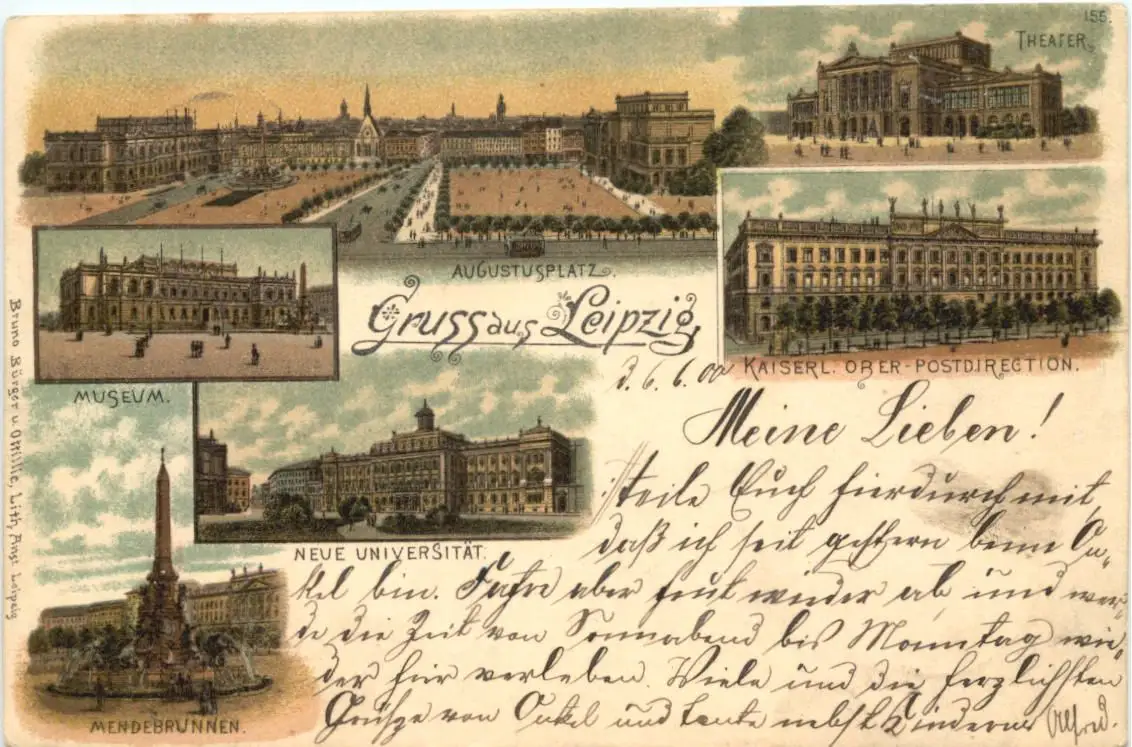 155.
THEATER.
AUGUSTUSPLATZ.
Gruss aus Leipzig,
KAISERL. OBER-POSTDIRECTION.
MUSEUM.
NEUE UNIVERSITÄT.
MENDEBRUNNEN.
Bruno Bürger u. Ottilie, Lith. Anst. Leipzig
d. 6. 6. 00
Meine Lieben!
teile Euch hierdurch mit,
daß ich seit gestern beim On-
kel bin. Fahre aber heut wieder ab und wer-
de die Zeit von Sonnabend bis Montag wie-
der hier verleben. Viele und die herzlichsten
Grüße von Onkel und Tante nebst Kindern Alfred.